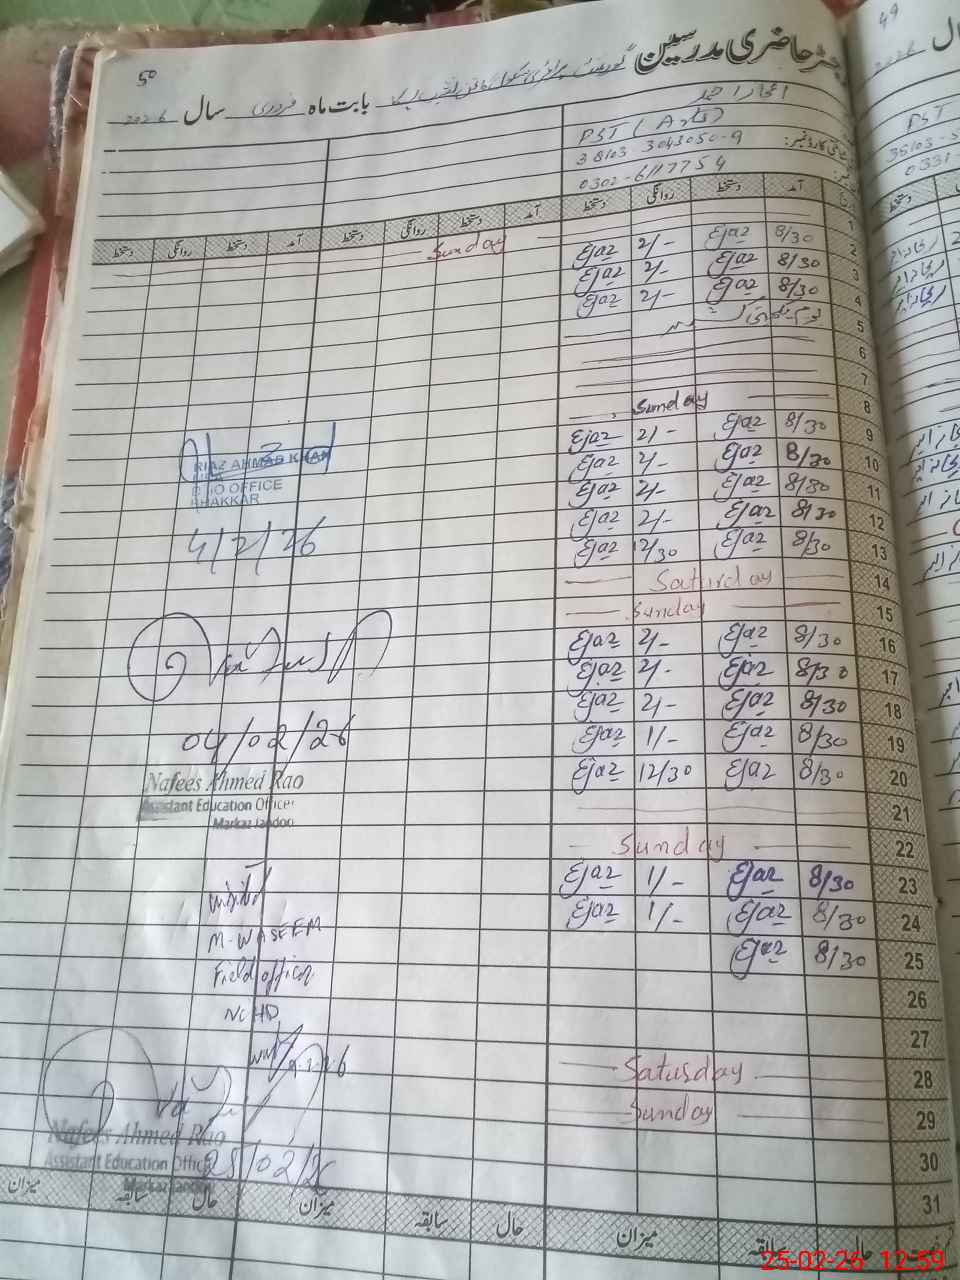 50
رجسٹر حاضری مدرسین گورنمنٹ پرائمری سکول
بابت ماہ فروری سال 2026
اعجاز احمد
PST (Arts)
38103 3043050-9
0302-6117754
آمد دستخط روانگی دستخط آمد دستخط روانگی دستخط آمد دستخط روانگی دستخط
1 Sunday
2 8/30 Ejaz 2/- Ejaz
3 8/30 Ejaz 2/- Ejaz
4 8/30 Ejaz 2/- Ejaz
5
6
7
8 Sunday
9 8/30 Ejaz 2/- Ejaz
10 8/30 Ejaz 2/- Ejaz
11 8/30 Ejaz 2/- Ejaz
12 8/30 Ejaz 2/- Ejaz
13 8/30 Ejaz 12/30 Ejaz
14 Saturday
15 Sunday
16 8/30 Ejaz 2/- Ejaz
17 8/30 Ejaz 2/- Ejaz
18 8/30 Ejaz 2/- Ejaz
19 8/30 Ejaz 1/- Ejaz
20 8/30 Ejaz 12/30 Ejaz
21
22 Sunday
23 8/30 Ejaz 1/- Ejaz
24 8/30 Ejaz 1/- Ejaz
25 8/30 Ejaz
26
27
28 Saturday
29 Sunday
30
31
RIAZ AHMAD KHAN
OFFICE
BHAKKAR
4/2/26
04/02/26
Nafees Ahmed Rao
Assistant Education Officer
Markaz Jandon
Visited
M. WASEEM
Field officer
NCHD
Nafees Ahmed Rao
Assistant Education Officer
25/02/26
Markaz Jandon
حال سابقہ میزان حال سابقہ میزان حال سابقہ میزان
49
2026
PST
25-02-26 12:59